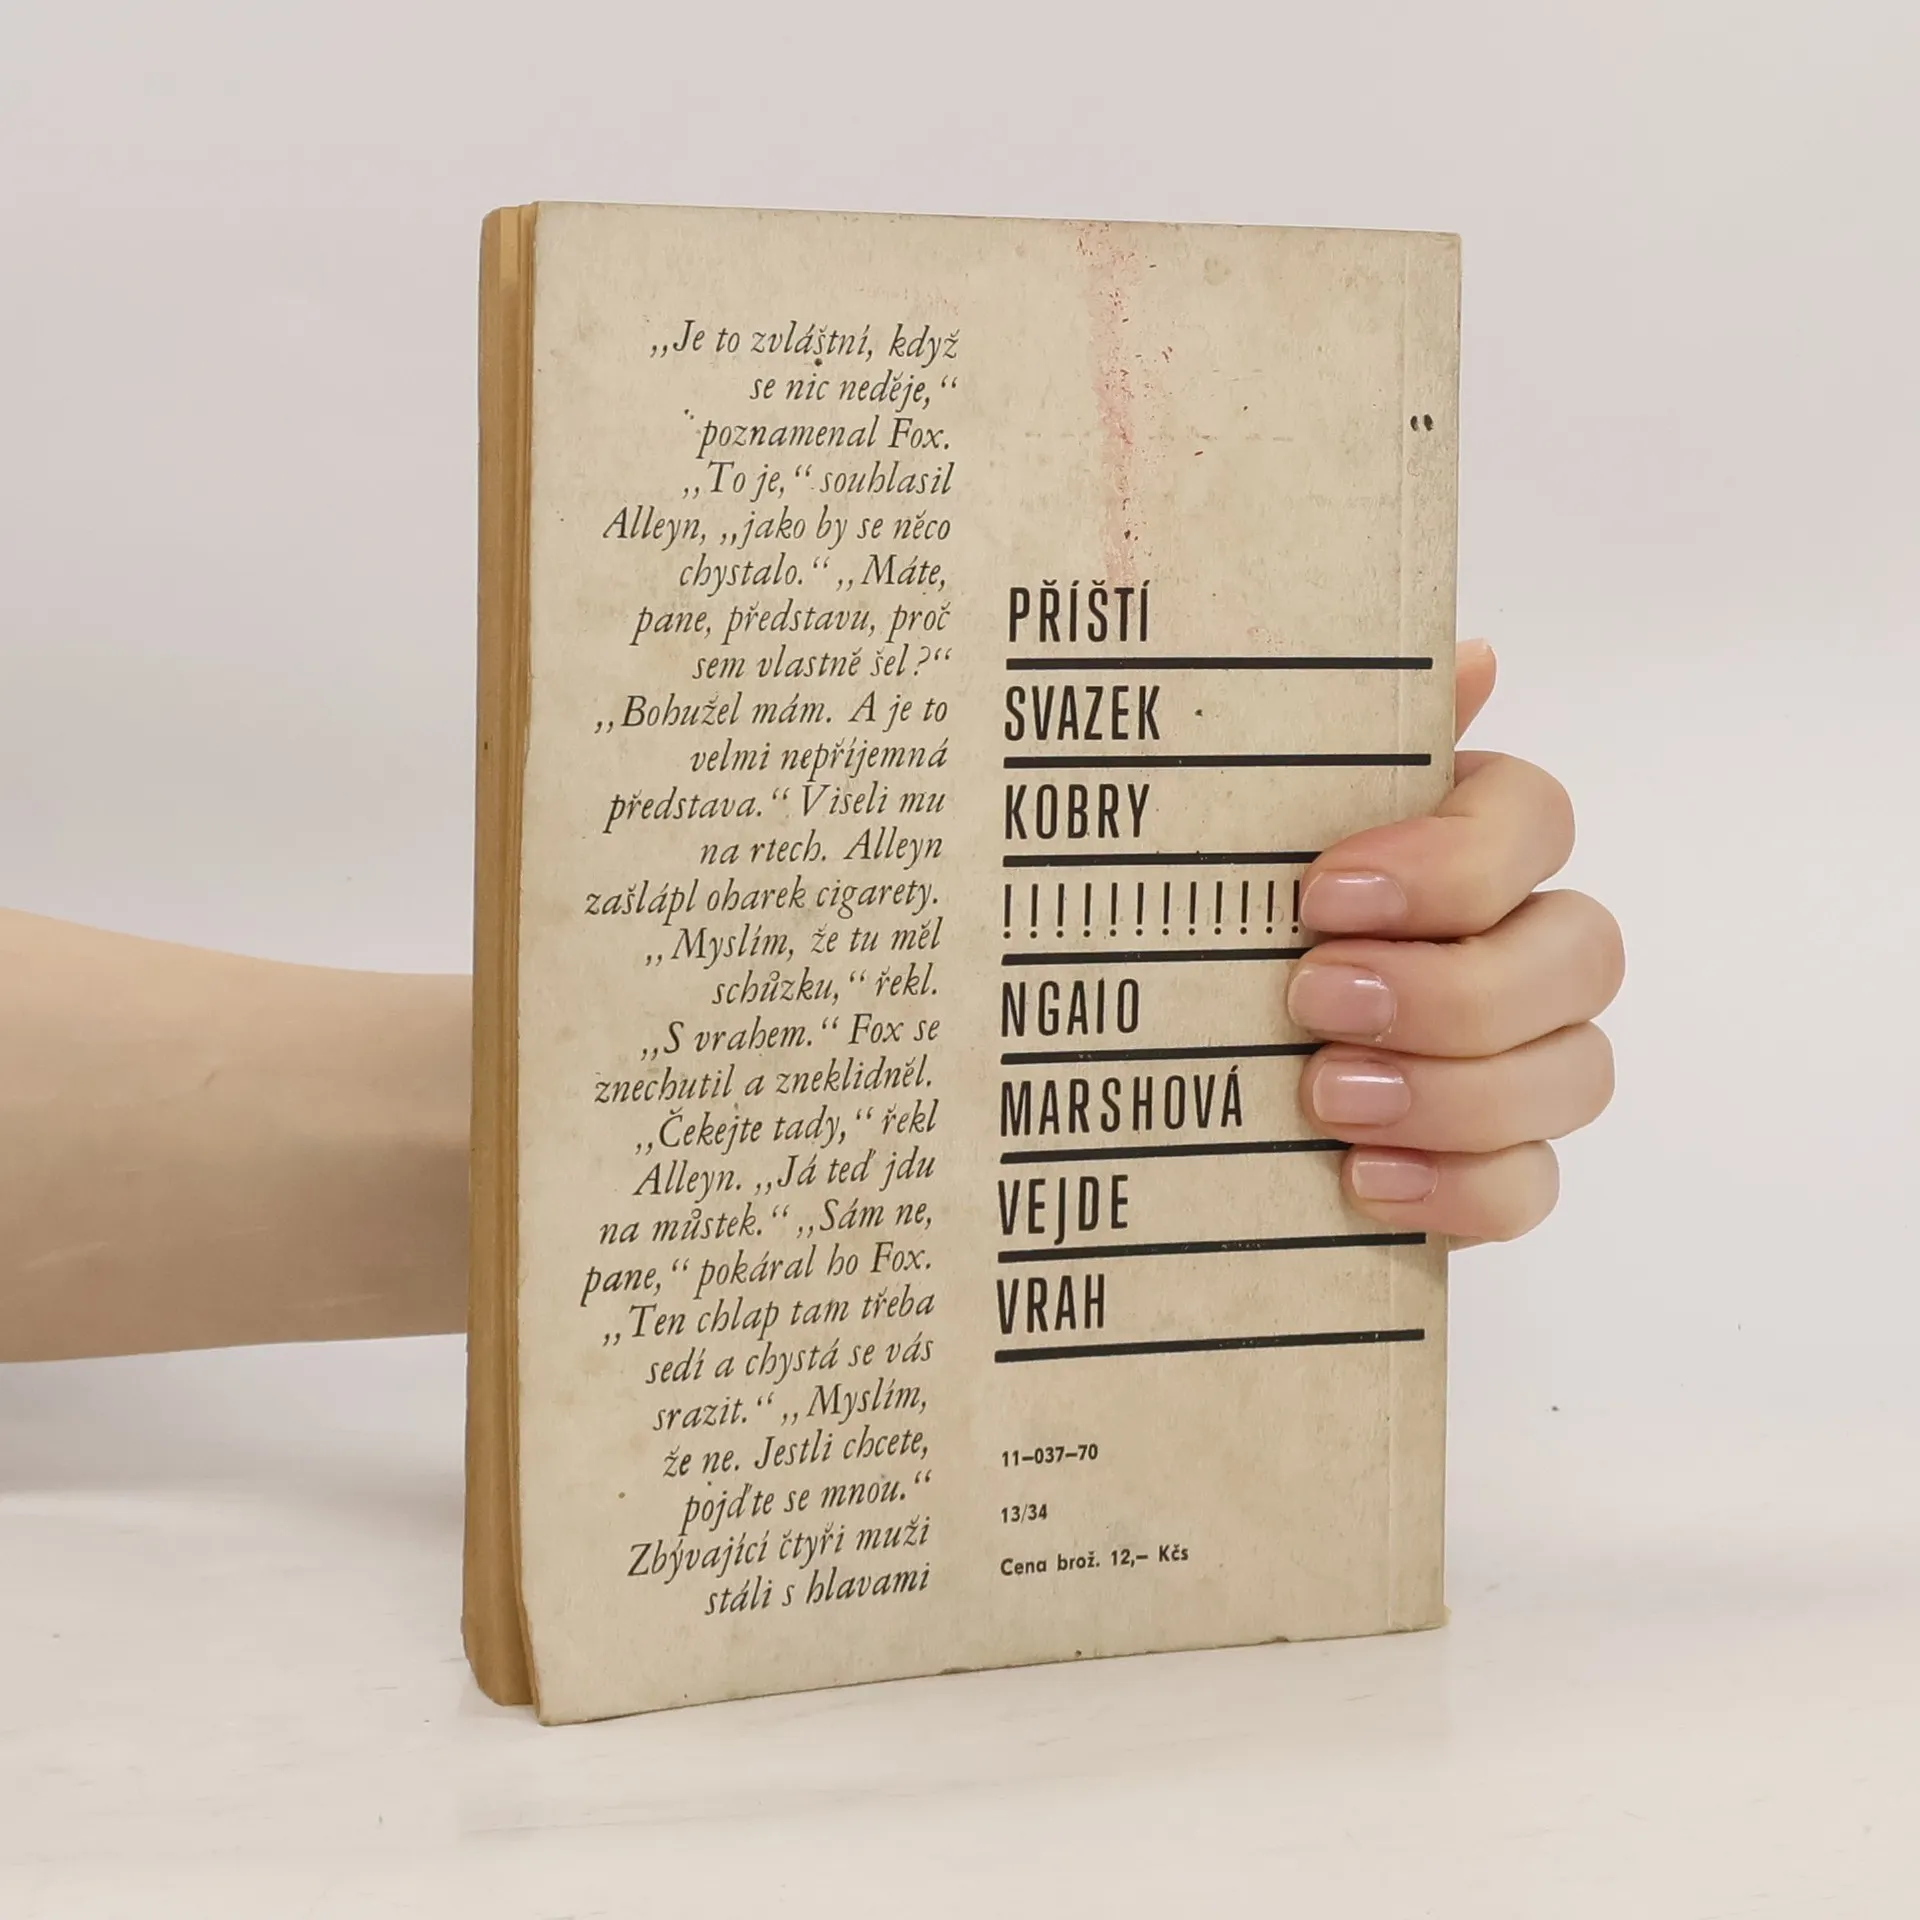 „Je to zvláštní, když
se nic neděje,“
poznamenal Fox.
„To je,“ souhlasil
Alleyn, „jako by se něco
chystalo.“ „Máte,
pane, představu, proč
sem vlastně šel?“
„Bohužel mám. A je to
velmi nepříjemná
představa.“ Viseli mu
na rtech. Alleyn
zašlápl oharek cigarety.
„Myslím, že tu měl
schůzku,“ řekl.
„S vrahem.“ Fox se
znechutil a zneklidněl.
„Čekejte tady,“ řekl
Alleyn. „Já teď jdu
na můstek.“ „Sám ne,
pane,“ pokáral ho Fox.
„Ten chlap tam třeba
sedí a chystá se vás
srazit.“ „Myslím,
že ne. Jestli chcete,
pojďte se mnou.“
Zbývající čtyři muži
stáli s hlavami
PŘÍŠTÍ
SVAZEK
KOBRY
!!!!!!!!!!!!
NGAIO
MARSHOVÁ
VEJDE
VRAH
11–037–70
13/34
Cena brož. 12,– Kčs